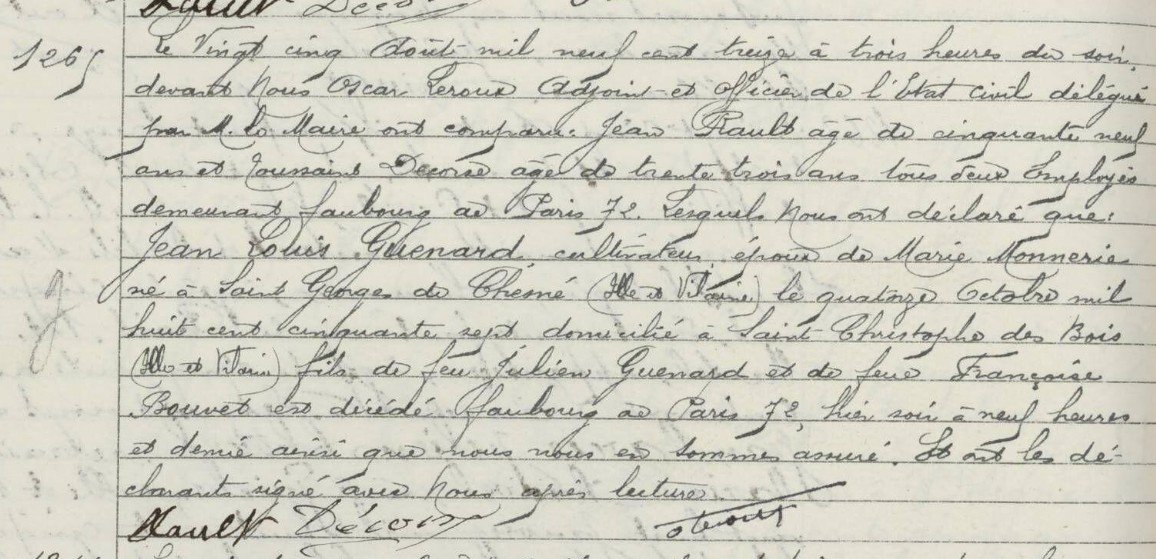 1265
Le Vingt cinq Août mil neuf cent treize à trois heures du soir,
devant Nous Oscar Leroux Adjoint et Officier de l'Etat civil délégué
par M. le Maire ont comparu: Jean Rault âgé de cinquante neuf
ans et Toussaint Decorse âgé de trente trois ans tous deux Employés
demeurant faubourg de Paris 72. Lesquels Nous ont déclaré que:
Jean Louis Guenard cultivateur, époux de Marie Monnerie
né à Saint Georges de Chesné (Ille et Vilaine) le quatorze Octobre mil
huit cent cinquante sept domicilié à Saint Christophe des Bois
(Ille et Vilaine) fils de feu Julien Guenard et de feue Françoise
Bouvet est décédé faubourg de Paris 72, hier soir à neuf heures
et demie ainsi que nous nous en sommes assuré. Et ont les dé-
clarants signé avec Nous après lecture.
Rault